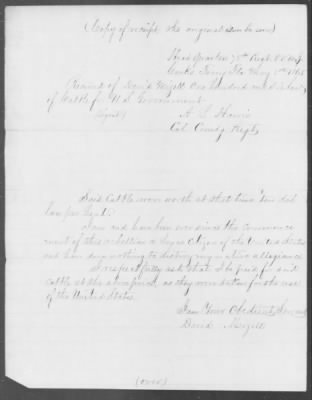 (Copy of receipt the original can be seen)
Head Quarters 75th Regt. O.V.M.I.
Camp Fla May 1st 1865
Received of David Mizell One hundred and
of Cattle for U.S. Government
(signed) A. L. Harris
Col. Comdg Regt.
Said Cattle were worth at that time ten dol
lars per head.
I am and have been ever since the commence
ment of this rebellion a loyal citizen of the United States
and have done nothing to destroy my native allegiance
I respectfully ask that I be paid for said
cattle at the above price, as they were taken for the use
of the United States.
I am Your Obedient Servant
David Mizell
(over)